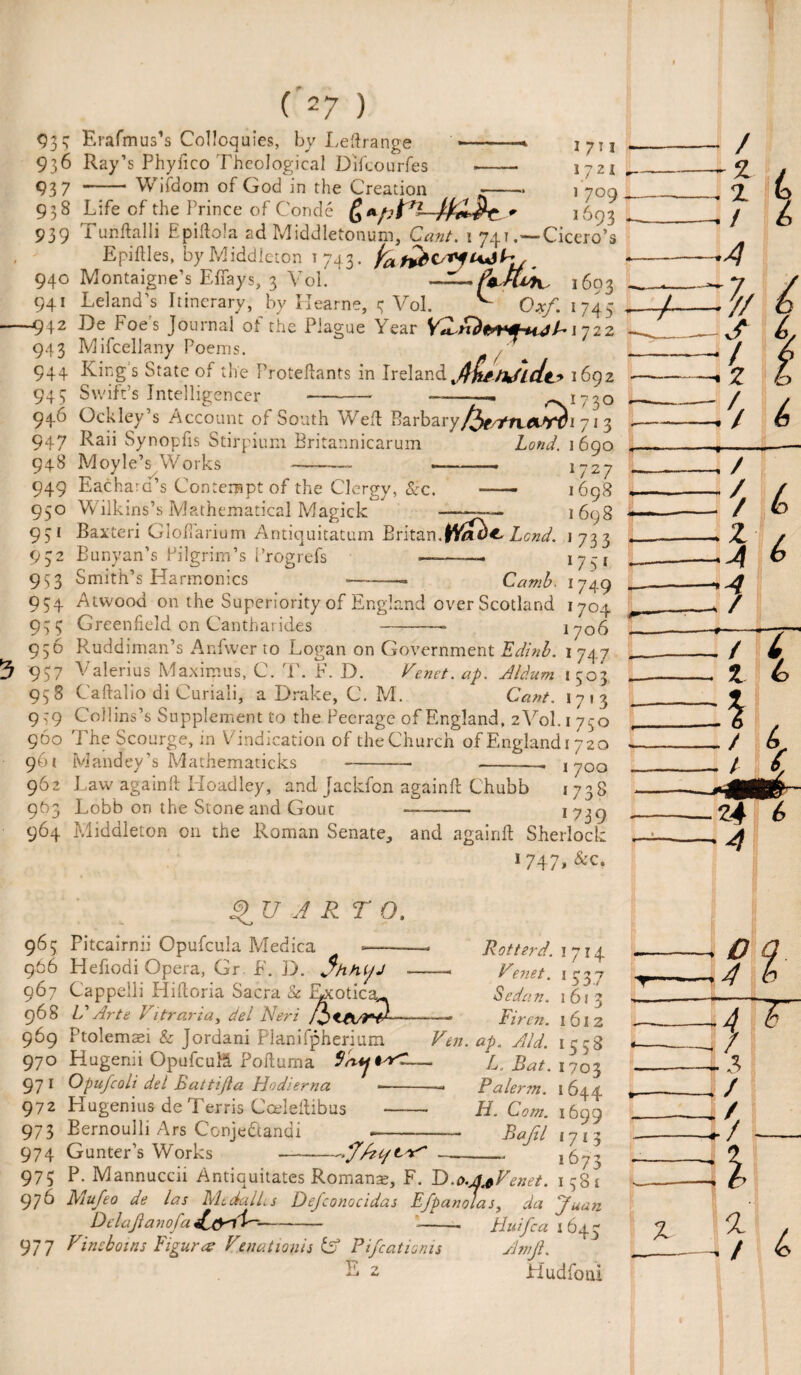 ( 27 )
935 Erasmus's Colloquies, by Lestrange — 1711 — /
936 Ray's Physico Theological Discourses — 1721 — 2
937 — Wisdom of God in the Creation — 1709 — 2 6
938 Life of the Prince of Condé 1693 — 1 6
939 Tunstalli Epistola ad Middletonum, Cant. 1741.—Cicero's
Epistles, by Middleton 1743. — 4
940 Montaigne's Essays, 3 Vol. — 1693 — 7
941 Leland's Itinerary, by Hearne, 5 Vol. Oxf. 1745 — 11 6
942 De Foe's Journal of the Plague Year 1722 — 5 6
943 Miscellany Poems.
944 King's State of the Protestants in Ireland 1692 — 2
945 Swift's Intelligencer — — 1730 — /
946 Ockley's Account of South West Barbary 1713 — 1 6
947 Raii Synopsis Stirpium Britannicarum Lond. 1690
948 Moyle's Works — — 1727 — /
949 Eachard's Contempt of the Clergy, &c. — 1698 — /
950 Wilkins's Mathematical Magick — 1698 — 1 6
951 Baxteri Glossarium Antiquitatum Britan. Lond. 1733 — 2
952 Bunyan's Pilgrim's Progress — 1751 — 4 6
953 Smith's Harmonics — Camb. 1749 — 4
954 Atwood on the Superiority of England over Scotland 1704 — /
955 Greenfield on Cantharides — 1706
956 Ruddiman's Answer to Logan on Government Edinb. 1747 — 1 6
957 Valerius Maximus, C. T. F. D. Venet. ap. Aldum 1503 — 2 6
958 Castalio di Curiali, a Drake, C. M. Cant. 1713
959 Collins's Supplement to the Peerage of England, 2Vol. 1750
960 The Scourge, in Vindication of the Church of England 1720 — 1 6
961 Mandey's Mathematicks — — 1700 — 1 6
962 Law against Hoadley, and Jackson against Chubb 1738
963 Lobb on the Stone and Gout — 1739 — 24 6
964 Middleton on the Roman Senate, and against Sherlock
1747, &c. — 4
QUARTO.
965 Pitcairnii Opuscula Medica — Rotterd. 1714
966 Hesiodi Opera, Gr. F. D. — Venet. 1537 — 4 6
967 Cappelli Historia Sacra & Exotica Sedan. 1613
968 L'Arte Vitraria, del Neri — Firen. 1612 — 4
969 Ptolemæi & Jordani Planispherium Ven. ap. Ald. 1558 — /
970 Hugenii Opuscula Postuma — L. Bat. 1703 — 3
971 Opuscoli del Battista Hodierna — Palerm. 1644 — /
972 Hugenius de Terris Cœlestibus — H. Com. 1699 — /
973 Bernoulli Ars Conjectandi — Basil 1713 — /
974 Gunter's Works — — 1673
975 P. Mannuccii Antiquitates Romanæ, F. D. Venet. 1581
976 Museo de las Medallas Desconocidas Espanolas, da Juan
Delastanosa — — Huisca 1645 2 2
977 Vincboins Figuræ Venationis & Piscationis Amst. — 1 6
E 2 Hudsoni